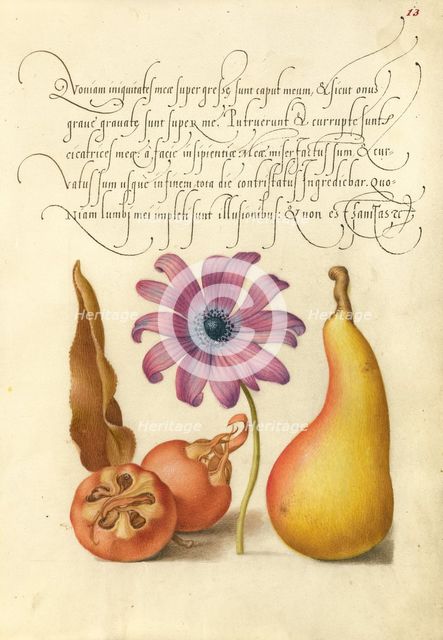 13
Quoniam iniquitates meæ supergressæ sunt caput meum, & sicut onus
graue grauatæ sunt super me. Putruerunt & corruptæ sunt
cicatrices meæ: à facie insipientiæ Meæ. miser factus sum & cur-
Vatus sum usque in finem, tota die contristatus Ingrediebar. Quo-
Niam lumbi mei impleti sunt illusionibus: & non est sanitas
Heritage
Heritage
Heritage
Heritage
Heritage
Heritage